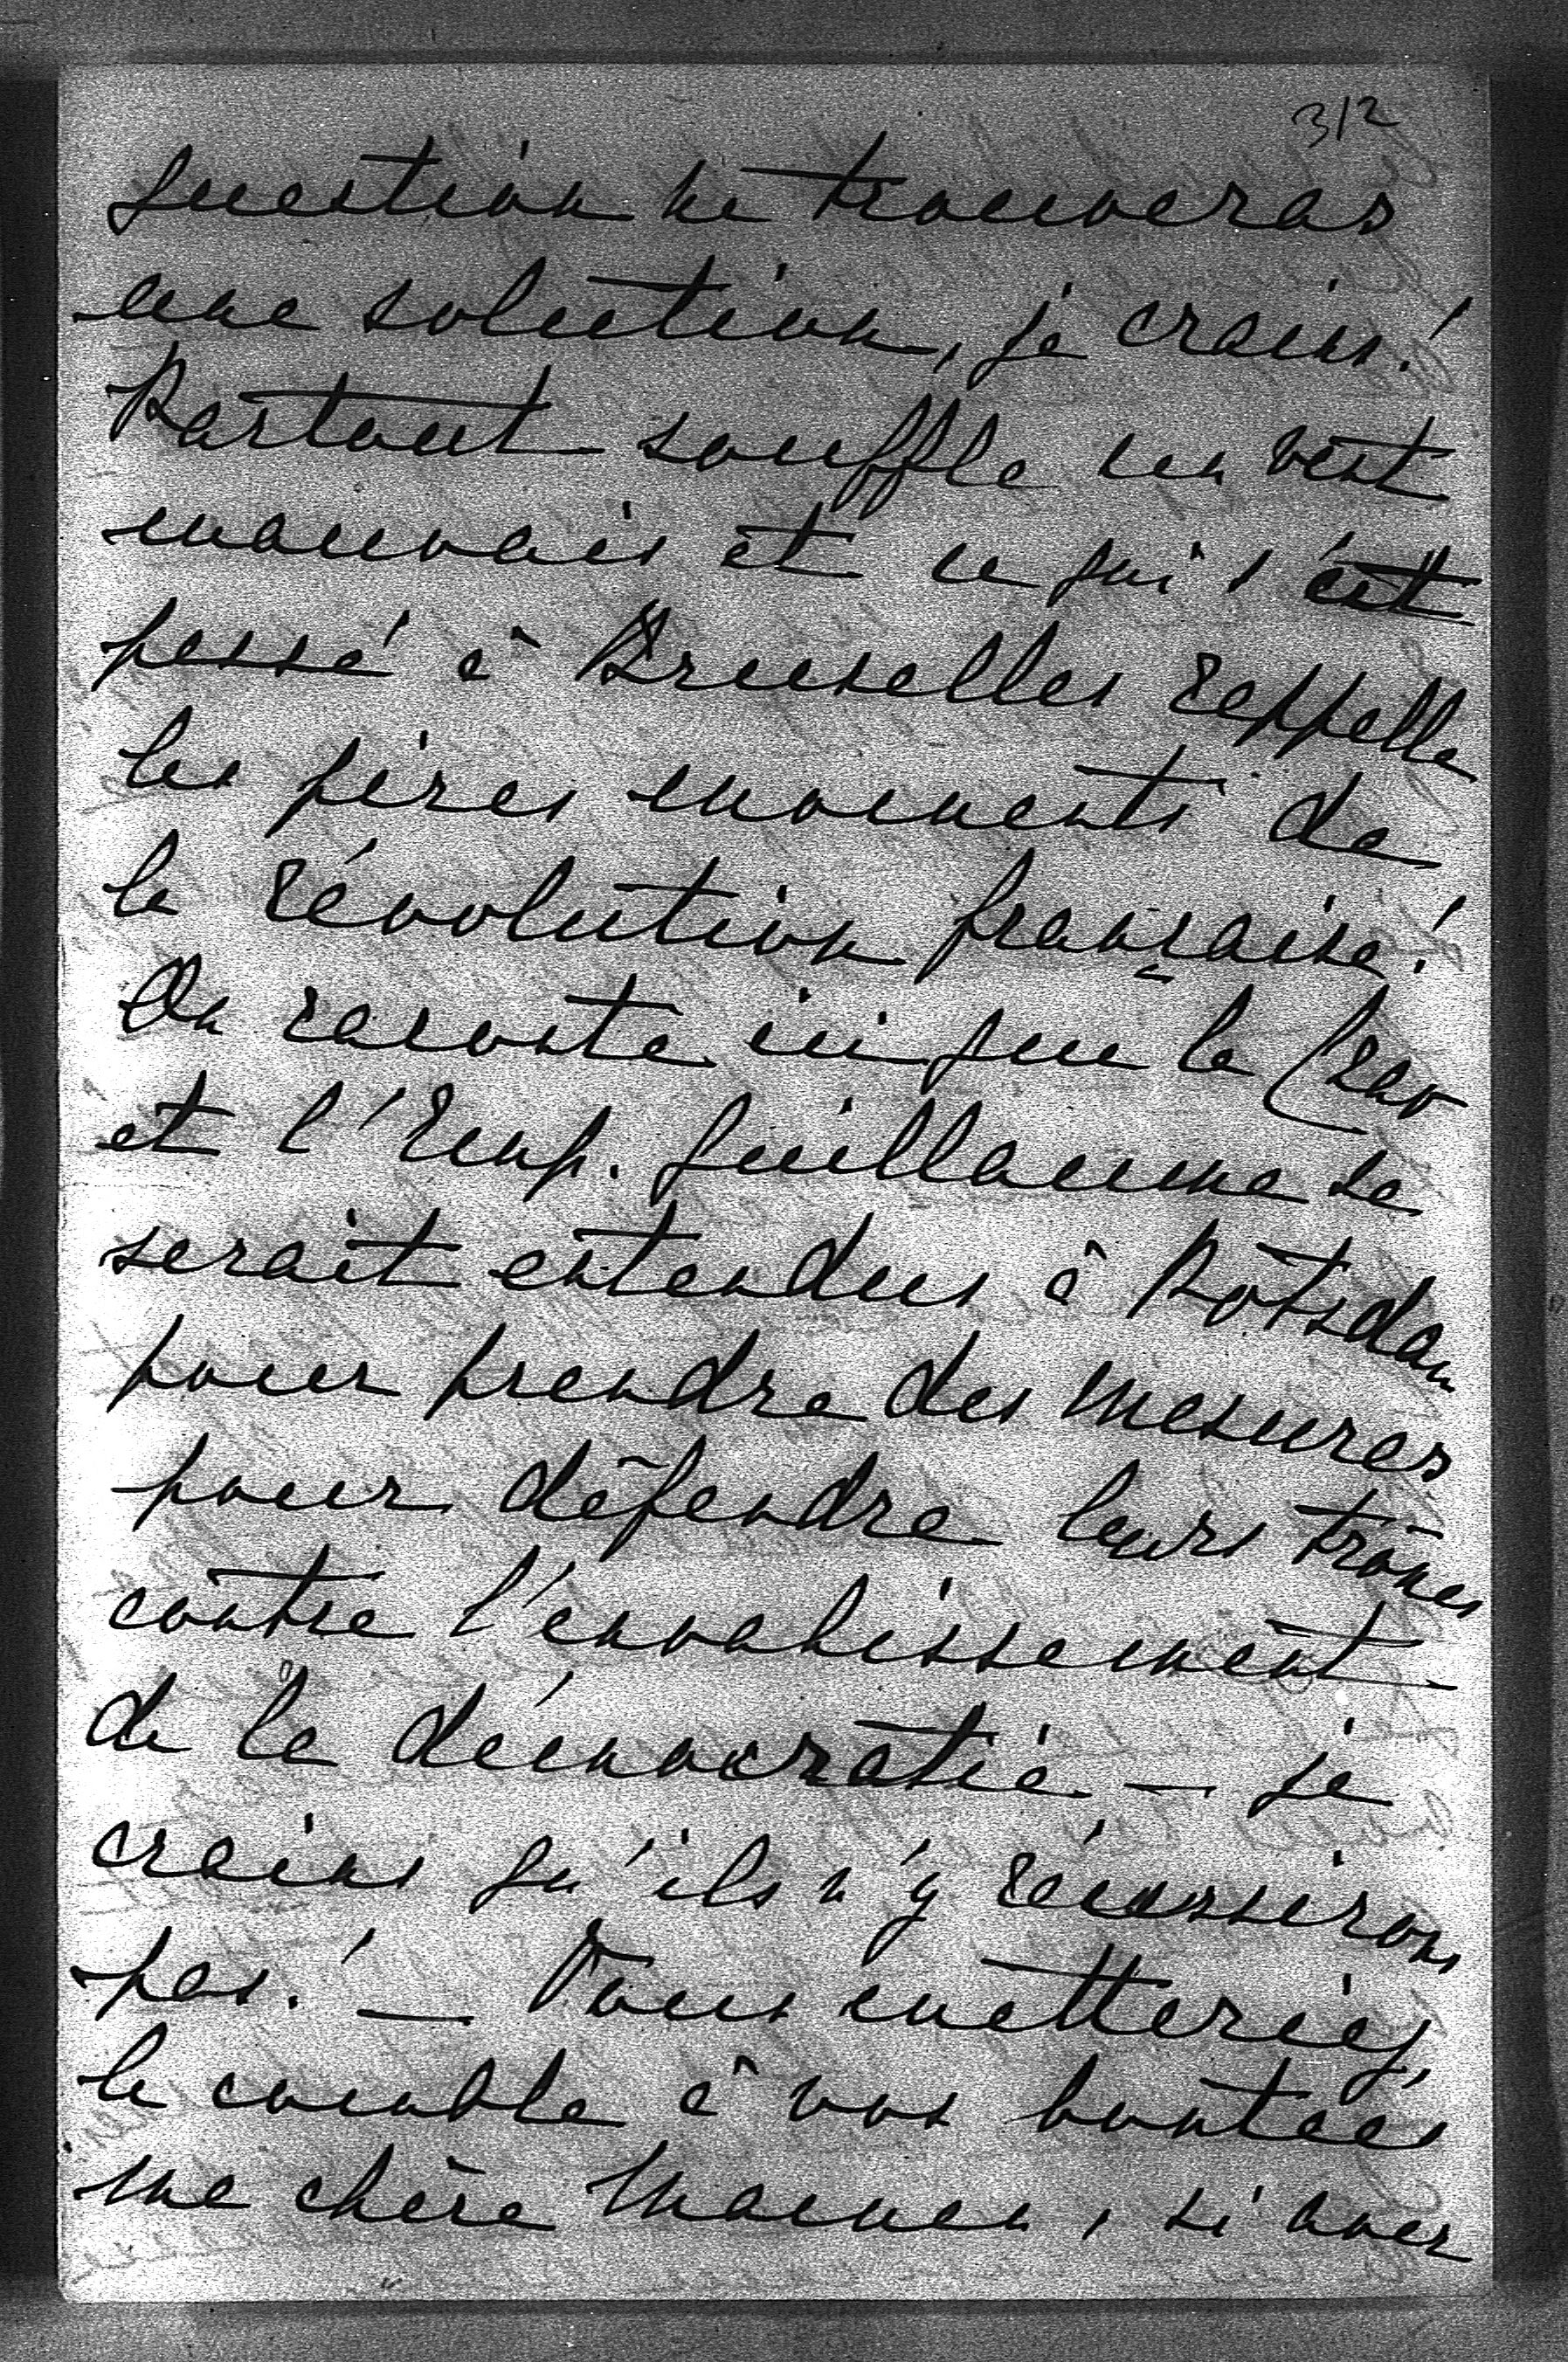 312
question ne trouveras
une solution, je crains!
Partout souffle un vent
mauvais et ce qui s'est
passé à Bruxelles rappelle
les pires moments de
la révolution française!
On raconte ici que le Czar
et l'Emp. Guillaume se
serait entendus à Potsdam
pour prendre des mesures
pour défendre leurs trônes
contre l'envahissement
de la démocratie, — je
crains qu'ils n'y réussirons
pas! — Vous metteriez,
le comble à vos bontées
ma chère Maman, si avez